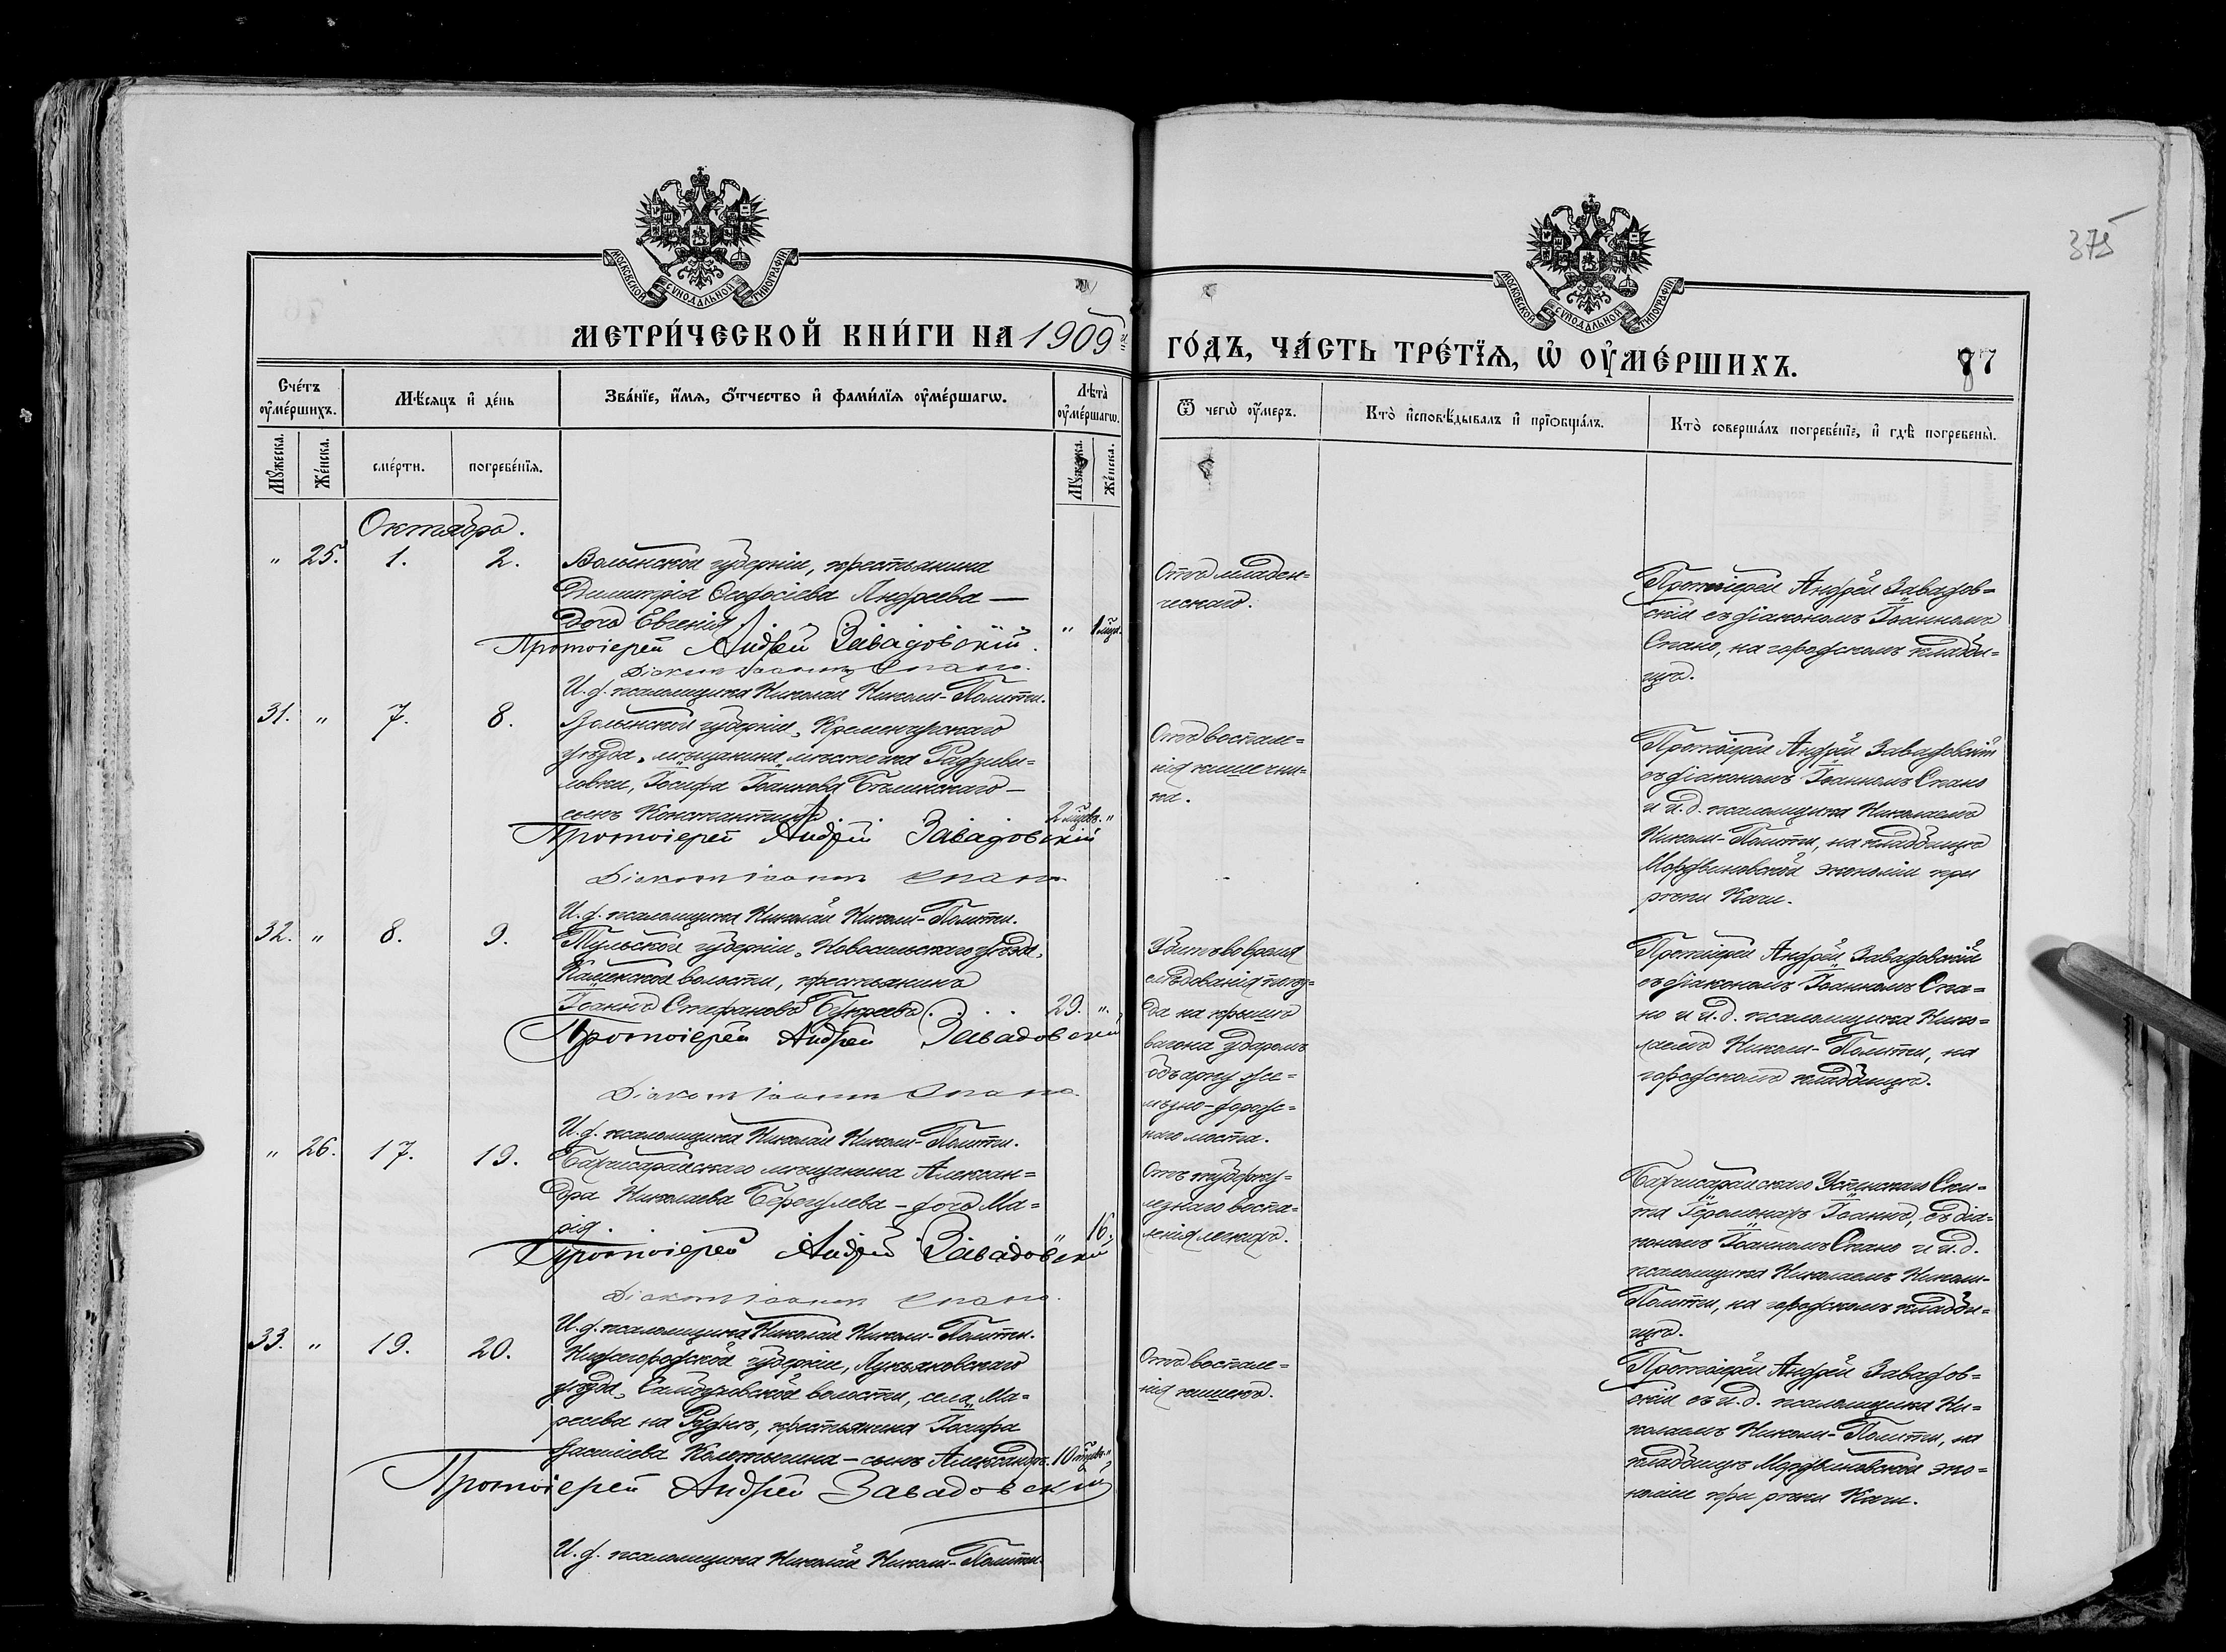 МОСКОВСКОЙ СѴНОДАЛЬНОЙ ТИПОГРАФІИ
МОСКОВСКОЙ СѴНОДАЛЬНОЙ ТИПОГРАФІИ
375
МЕТРИ́ЧЕСКОЙ КНИ́ГИ НА 1909й
ГО́ДЪ, ЧА́СТЬ ТРЕ́ТЇѦ, Ѡ҆ ОУ҆МЕ́РШИХЪ.
77
Сче́тъ оу҆ме́ршихъ.
Мѣ́сяцъ и҆ де́нь
Зва́нїе, и҆́мѧ, ѻ҆́тчество и҆ фами́лїѧ оу҆ме́ршагѡ.
Лѣта̀ оу҆ме́ршагѡ.
Ѿ чегѡ̀ оу҆́меръ.
Кто̀ и҆сповѣ́дывалъ и҆ прїѡбща́лъ.
Кто̀ соверша́лъ погребе́нїе, и҆ гдѣ̀ погребены̀.
Мꙋ́жеска.
Же́нска.
сме́рти.
погребе́нїѧ.
Мꙋ́жеска.
Же́нска.
Октябрь.
" 25. 1. 2.
Волынской губерніи, крестьянина
Димитрія Ѳеодосіева Андреева —
дочь Евгенія.
" 1 мѣс.
Протоіерей Андрей Завадовскій.
Діаконъ Іоаннъ Спано.
И. д. псаломщика Николай Николи-Политти.
Отъ младен=
ческаго.
Протоіерей Андрей Завадов=
скій съ діакономъ Іоанномъ
Спано, на городскомъ кладби=
щѣ.
31. " 7. 8.
Волынской губерніи, Кременецкаго
уѣзда, мѣщанина мѣстечка Радзиви=
лова, Іосифа
сынъ Константинъ
Протоіерей Андрей Завадовскій
Діаконъ Іоаннъ Спано
И. д. псаломщика Николай Николи-Политти.
Отъ воспале=
нія кишечни=
ка.
Протоіерей Андрей Завадовскій
съ діакономъ Іоанномъ Спано
и и. д. псаломщика Николаемъ
Николи-Политти, на кладбищѣ
Мордвиновской экономіи при
рѣкѣ Качи.
32. " 8. 9.
Тульской губерніи, Новосильскаго уѣзда,
Каменской волости, крестьянинъ
Іоаннъ Стефановъ
29. ".
Протоіерей Андрей Завадовскій
Діаконъ Іоаннъ Спано
И. д. псаломщика Николай Николи-Политти.
Убитъ во время
слѣдованія поѣз=
да на крышѣ
вагона ударомъ
объ арку же=
лѣзно-дорож=
наго моста.
Протоіерей Андрей Завадовскій
съ діакономъ Іоанномъ Спа=
но и и. д. псаломщика Нико=
лаемъ Николи-Политти, на
городскомъ кладбищѣ.
" 26. 17. 19.
Бахчисарайскаго мѣщанина Алексан=
дра Николаева — дочь Ма=
рія.
" 16.
Протоіерей Андрей Завадовскій
Діаконъ Іоаннъ Спано.
И. д. псаломщика Николай Николи-Политти.
Отъ туберку=
лезнаго воспа=
ленія легкихъ.
Бахчисарайскаго Успенскаго Ски=
та Іеромонахъ Іоаннъ, съ діа=
кономъ Іоанномъ Спано и и. д.
псаломщика Николаемъ Николи-
Политти, на городскомъ кладби=
щѣ.
33. " 19. 20.
Нижегородской губерніи, Лукояновскаго
уѣзда, волости, села Ма=
ресева на Руднѣ, крестьянина Іосифа
Васильева — сынъ Александръ.
Протоіерей Андрей Завадовскій
И. д. псаломщика Николай Николи-Политти.
Отъ воспале=
нія кишекъ.
Протоіерей Андрей Завадов=
скій съ и. д. псаломщика Ни=
колаемъ Николи-Политти, на
кладбищѣ Мордвиновской эко=
номіи при рѣкѣ Качи.